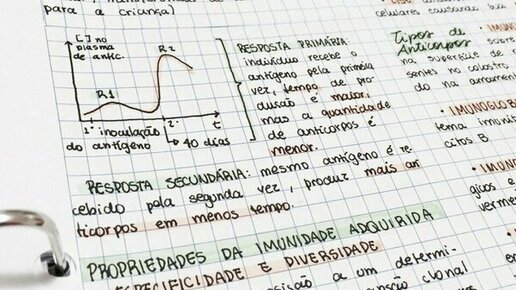 para a criança)
[ ] no
plasma
de antic.
R1
R2
t
1ª inoculação
do antígeno
2ª
↳ 40 dias
RESPOSTA PRIMÁRIA:
indivíduo recebe o
antígeno pela primeira
vez, tempo de pro-
dução é maior,
mas a quantidade
de anticorpos é
menor.
RESPOSTA SECUNDÁRIA: mesmo antígeno é re
cebido pela segunda vez, produz mais an
ticorpos em menos tempo.
PROPRIEDADES DA IMUNIDADE ADQUIRIDA
ESPECIFICIDADE E DIVERSIDADE
a um determi-
clonal
celulares causarão
Tipos de
Anticorpos
na superfície
sentes no colostro
do na
• IMUNOGLOB
tema imunit
citos B.
gicos e
verme